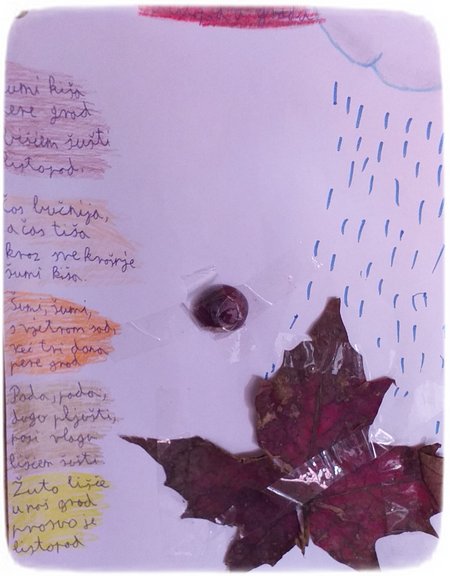 umi kiša
ere grad
lišćem šušti
listopad.
čas bučnija,
a čas tiša
kroz sve krošnje
šumi kiša.
Šumi, šumi,
s vjetrom sad,
već tri dana
pere grad.
Pada, pada,
dugo pljušti,
rosi vlagu
lišćem šušti
Žuto lišće
u naš grad
prosuo je
listopad